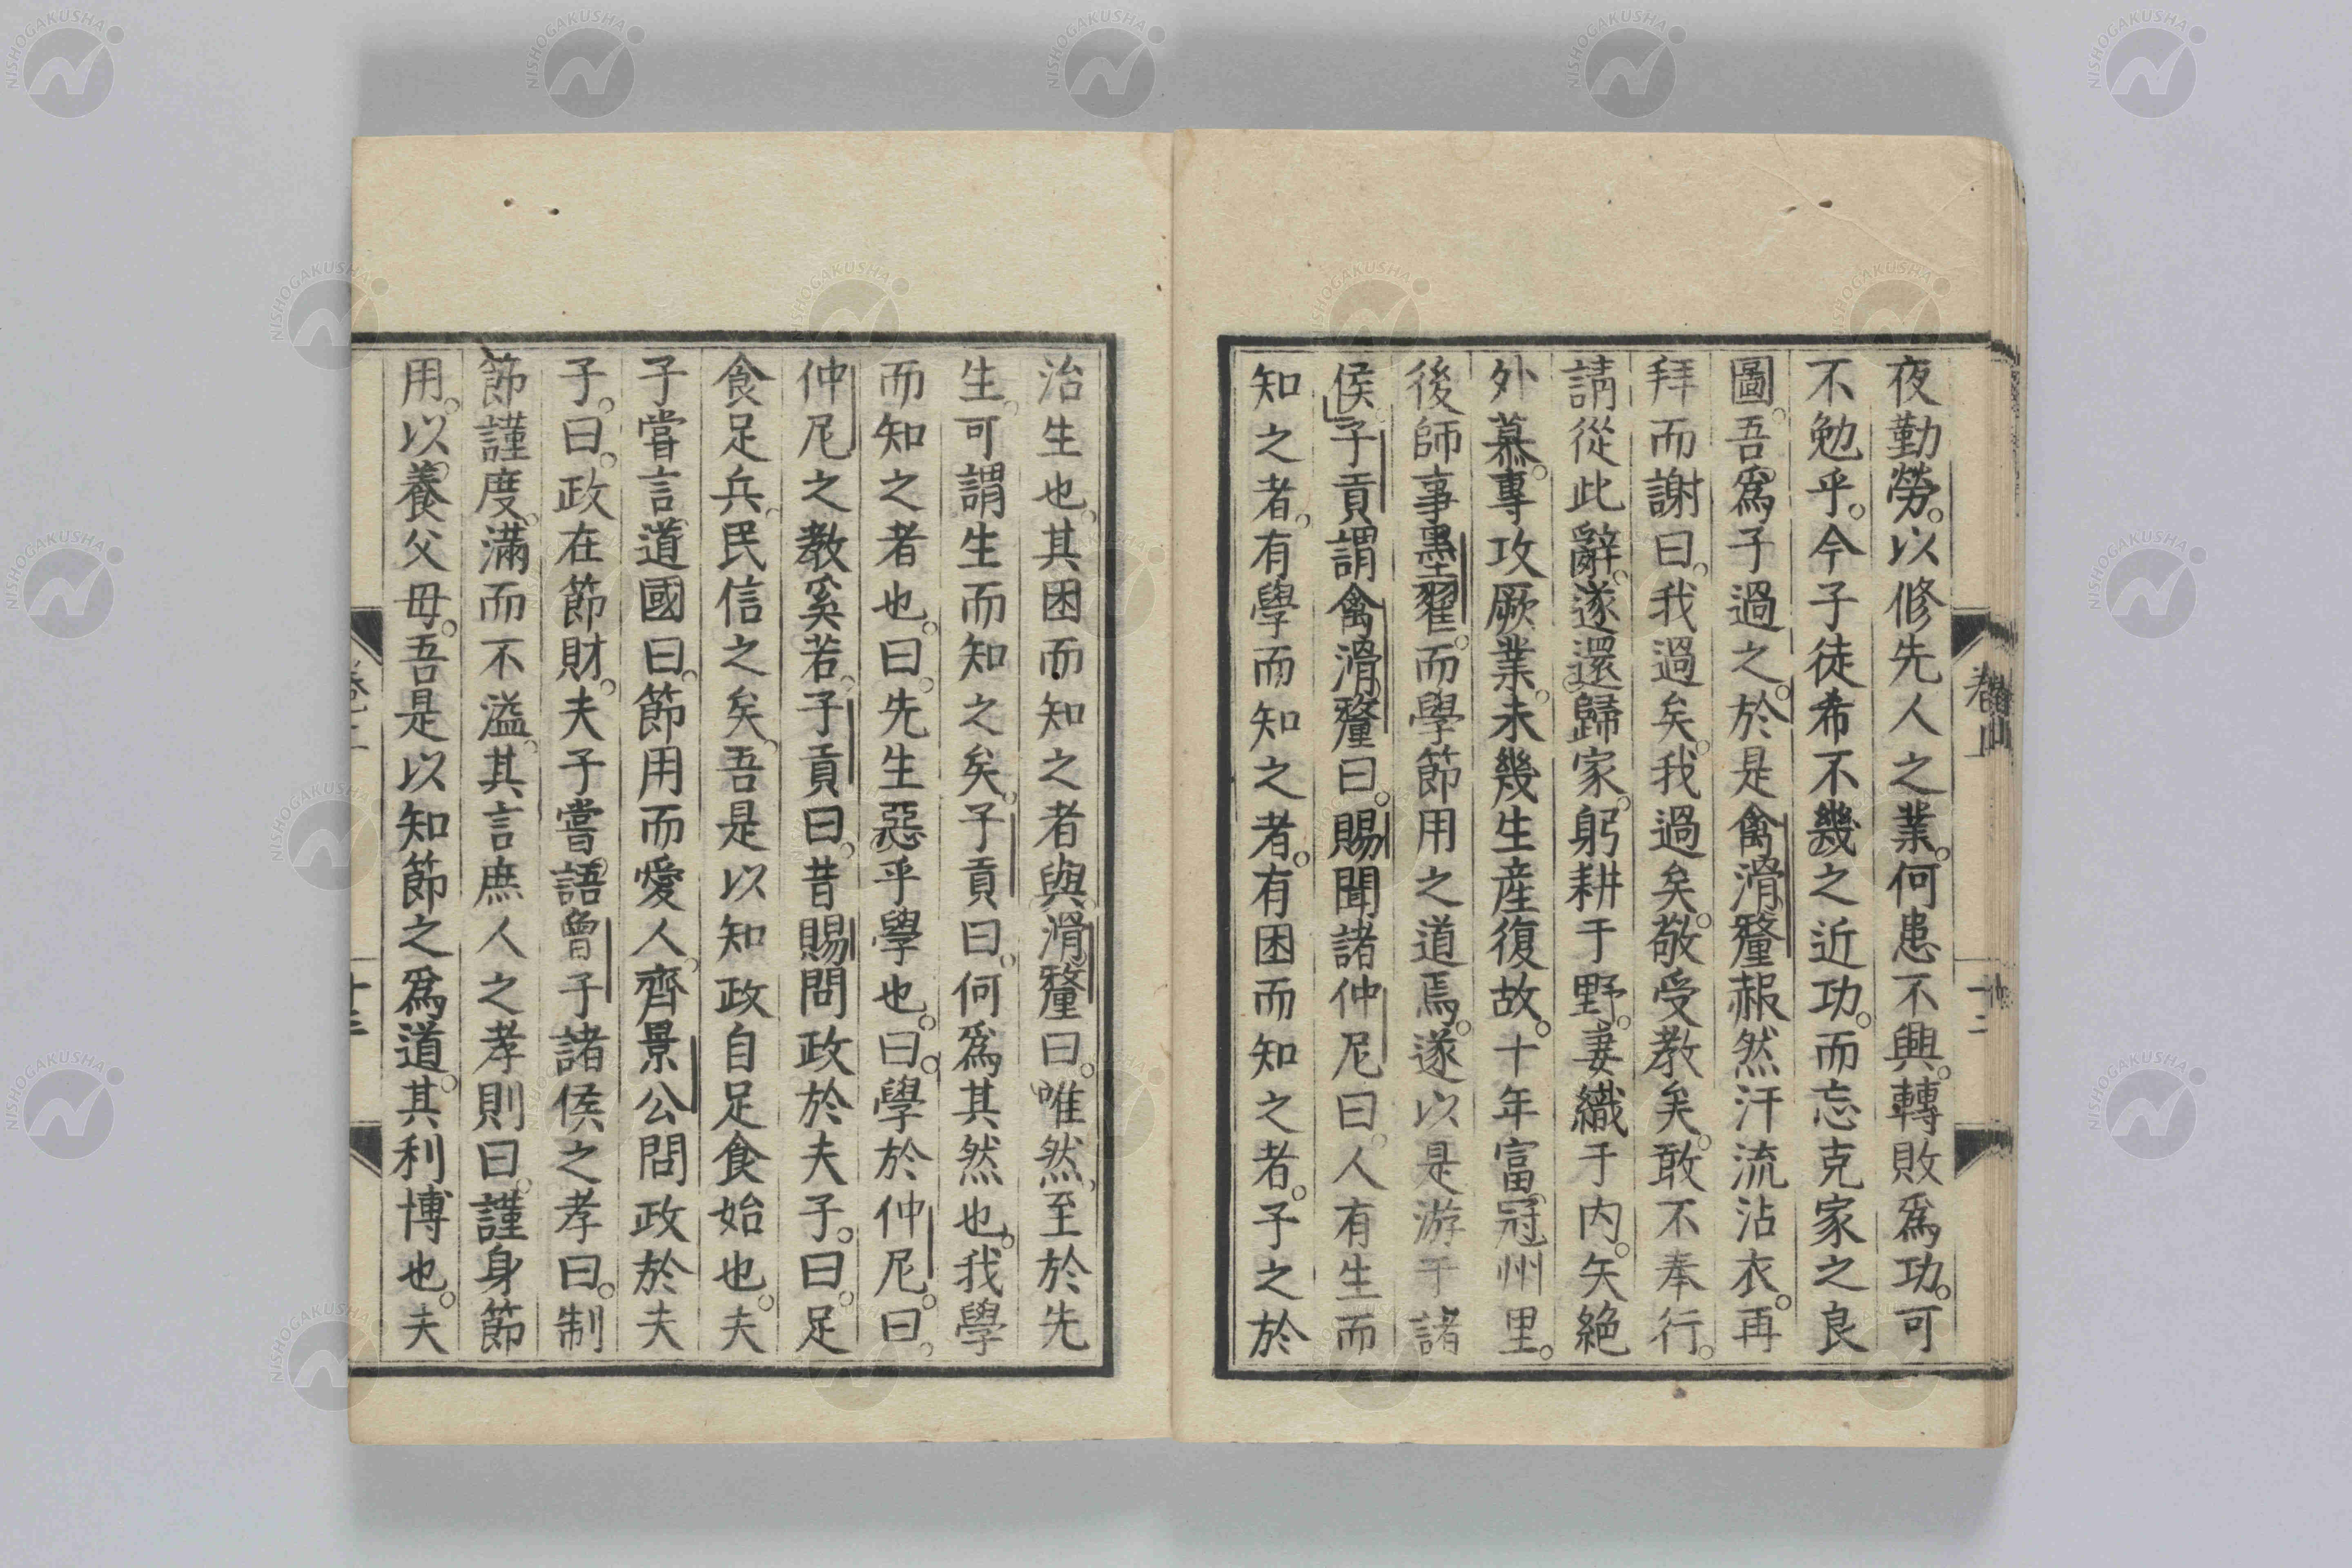 夜勤勞。以修先人之業。何患不興。轉敗爲功。可
不勉乎。今子徒希不幾之近功。而忘克家之良
圖。吾爲子過之。於是禽滑釐赧然汗流沾衣。再
拜而謝曰。我過矣。我過矣。敬受教矣。敢不奉行。
請從此辭。遂還歸家。躬耕于野。妻織于内。矢絶
外慕。專攻厥業。未幾生産復故。十年富冠州里。
後師事墨翟。而學節用之道焉。遂以是游于諸
侯」子貢謂禽滑釐曰。賜聞諸仲尼曰。人有生而
知之者。有學而知之者。有困而知之者。子之於
治生也。其困而知之者與。滑釐曰。唯然。至於先
生。可謂生而知之矣。子貢曰。何爲其然也。我學
而知之者也。曰。先生惡乎學也。曰。學於仲尼。曰。
仲尼之教奚若。子貢曰。昔賜問政於夫子。曰。足
食足兵。民信之矣。吾是以知政自足食始也。夫
子嘗言道國曰。節用而愛人。齊景公問政於夫
子。曰。政在節財。夫子嘗語曾子諸侯之孝曰。制
節謹度。滿而不溢。其言庶人之孝則曰。謹身節
用。以養父母。吾是以知節之爲道。其利博也。夫
NISHOGAKUSHA